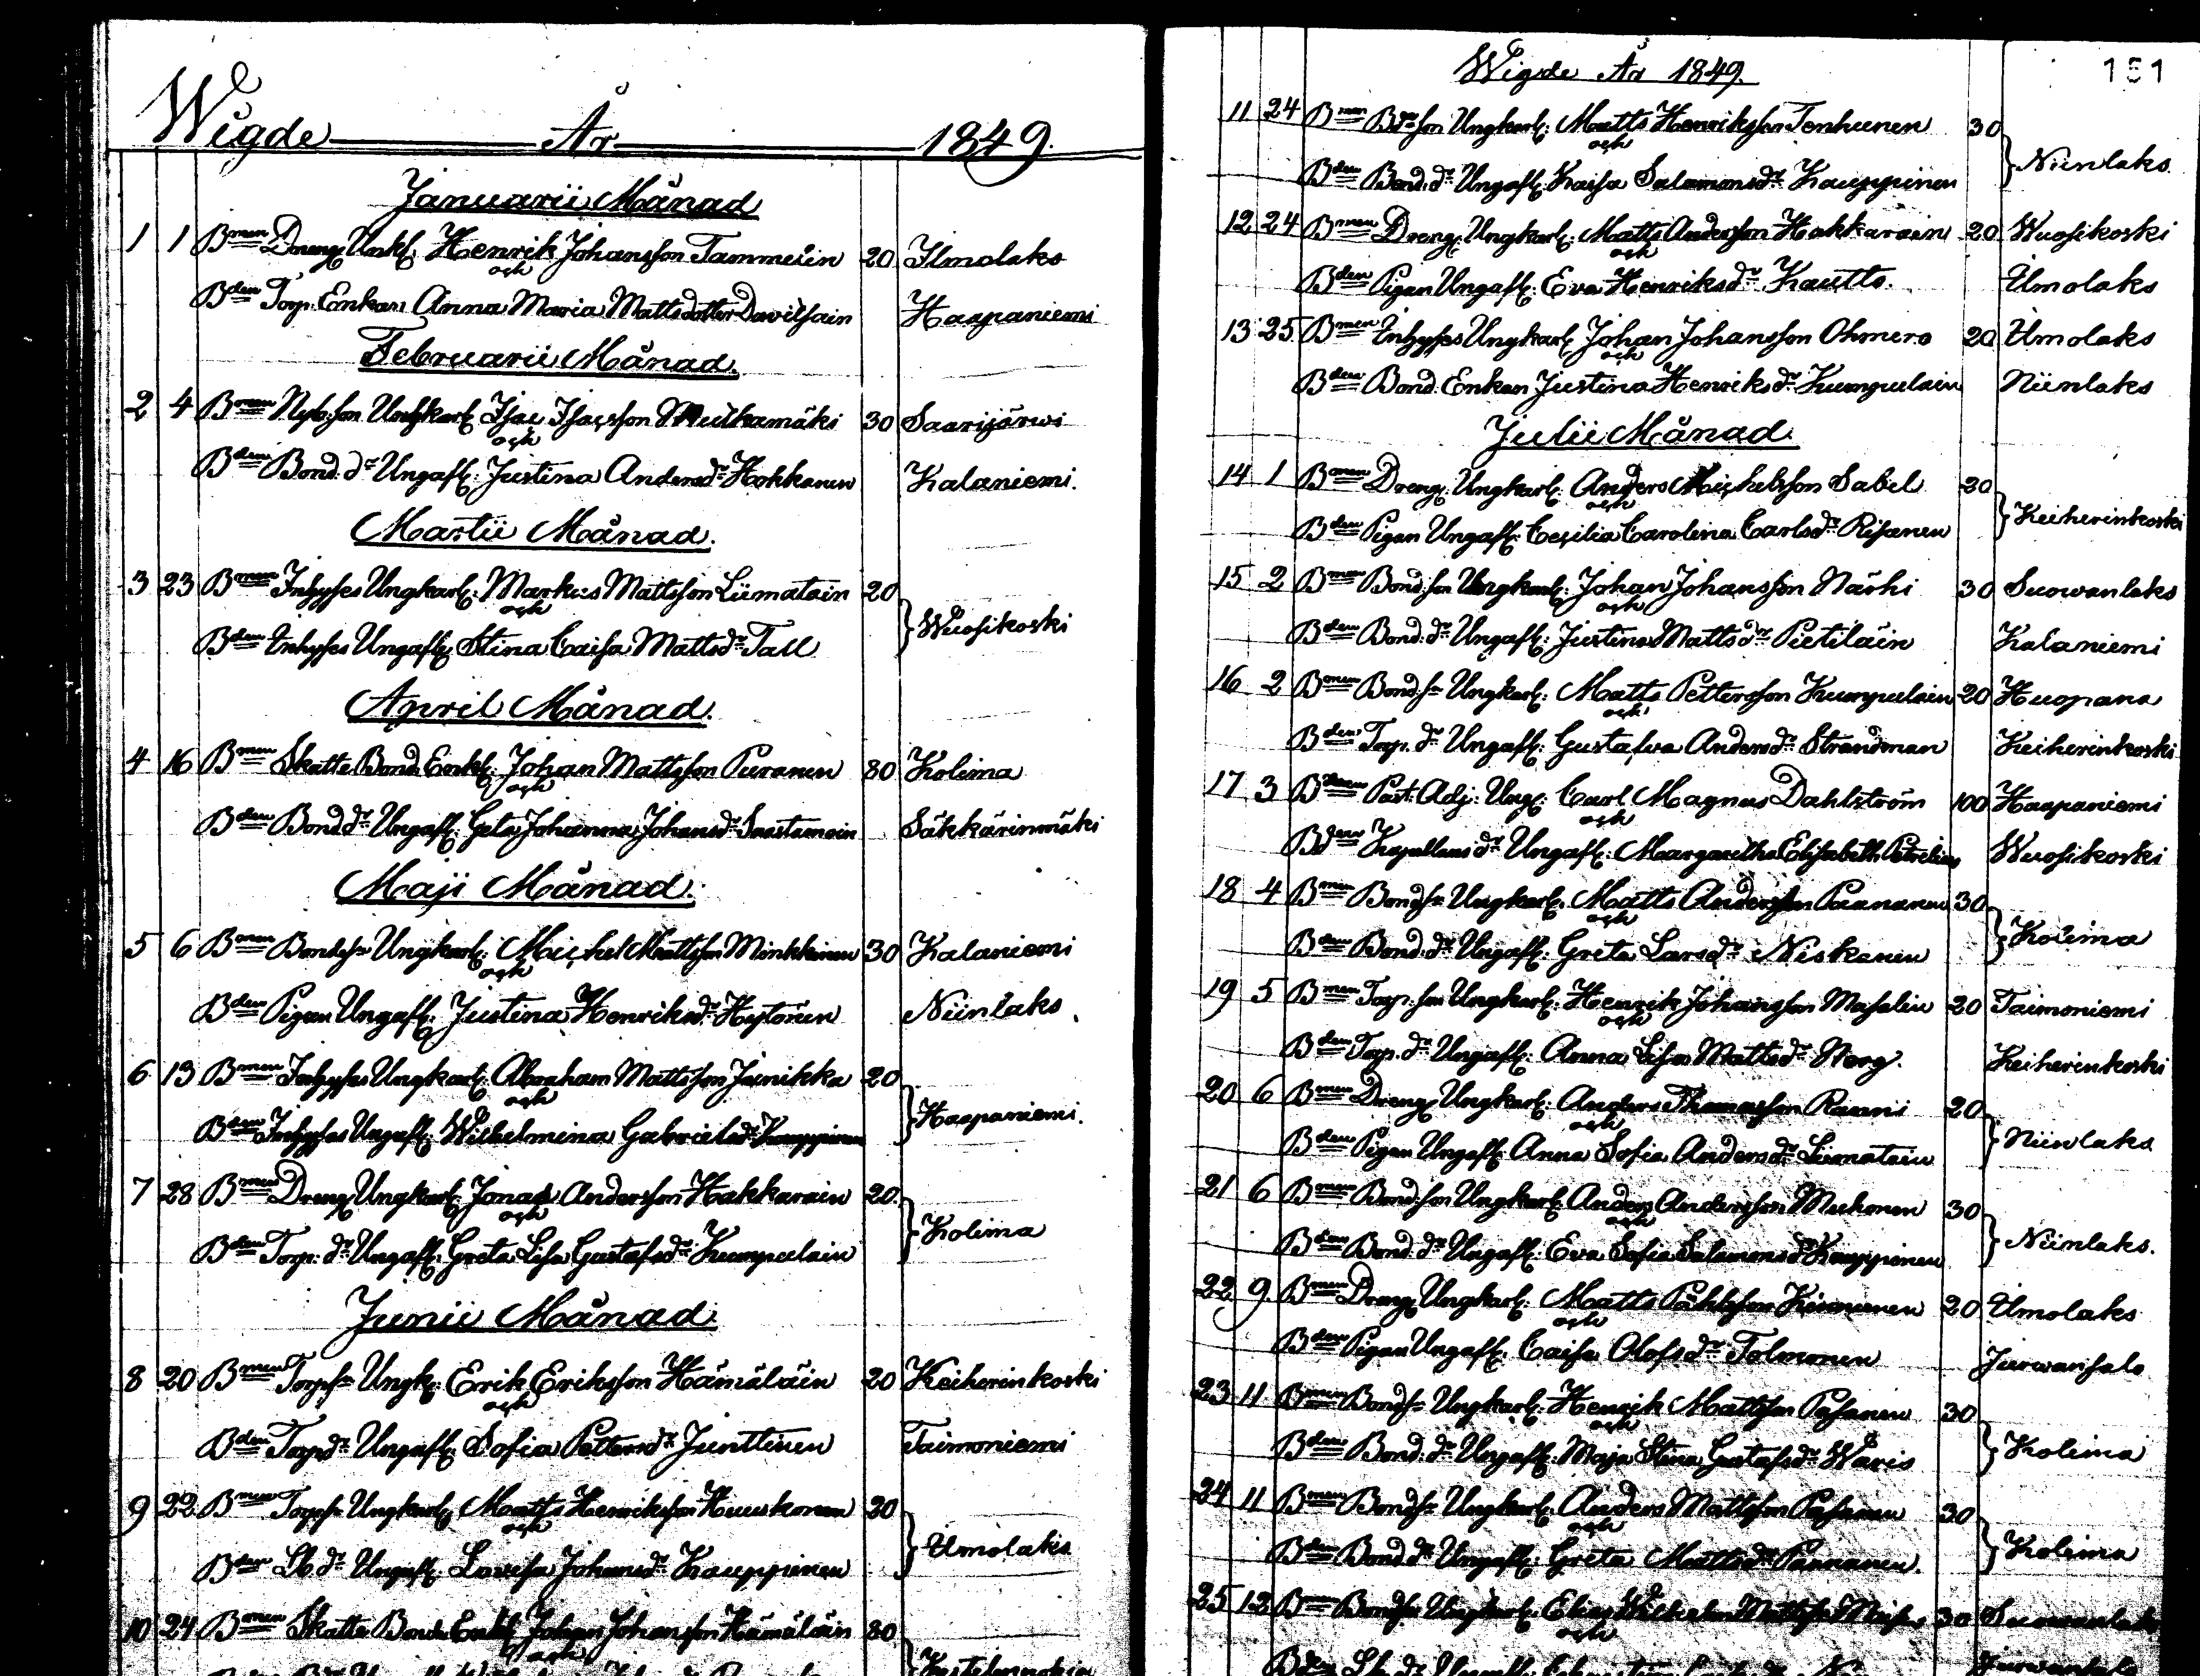 Wigde År 1849.
Januarii Månad
1 1 Bmen Dreng Unkl. Henrik Johansson Tammelin 20 Ilmolaks
och
Bden Torp. Enkan Anna Maria Mattsdotter Davidsain Haapaniemi
Februarii Månad.
2 4 Bmen Nyb. son Ungkarl. Isac Isacsson 30 Saarijärwi
och
Bden Bond. dr Ungafl. Justina Andersdr Hokkanen Kalaniemi.
Martii Månad.
3 23 Bmen Inhyses Ungkarl. Markus Mattsson Liimatain 20
och
} Wuosikoski
Bden Inhyses Ungafl. Stina Caisa Mattsdr Tall
April Månad.
4 16 Bmen Skatte Bond. Enkl. Johan Mattsson Puranen 80 Kolima
och
Bden Bond dr Ungafl. Greta Johanna Johansdr Saastamoin Säkkärinmäki
Maji Månad.
5 6 Bmen Bondesn Ungkarl. Michel Mattsson Minkkinen 30 Kalaniemi
och
Bden Pigan Ungafl. Justina Henriksdr Hytönen Niinlaks
6 13 Bmen Inhyses Ungkarl. Abraham Mattsson Junikka 20
och
} Haapaniemi.
Bden Inhyses Ungafl. Wilhelmina Gabrielsdr Kauppinen
7 28 Bmen Dreng Ungkarl. Jonas Andersson Hakkarain 20
och
} Kolima
Bden Torp. dr Ungafl. Greta Lisa Gustafsdr Kumpulain
Junii Månad.
8 20 Bmen Torpsn Ungk. Erik Eriksson Hämäläin 20 Keiherinkoski
och
Bden Torpdr Ungafl. Sofia Pettersdr Junttinen Taimoniemi
9 22 Bmen Torpsn Ungkarl. Matts Henriksson Huuskonen 20
och
} Ilmolaks
Bden Sb. dr Ungafl. Lovisa Johansdr Kauppinen
10 24 Bmen Skatte Bonde Enkl. Johan Johansson Hämäläin 80
och
Wigde År 1849.
151
11 24 Bmen Bdeson Ungkarl. Matts Henriksson Tenhunen 30
och
} Niinlaks
Bden Bond. dr Ungafl. Kaisa Salamonsdr Kauppinen
12 24 Bmen Dreng Ungkarl. Matts Andersson Hakkarain 20 Wuosikoski
och
Bden Pigan Ungafl. Eva Henriksdr Kautto. Ilmolaks
13 25 Bmen Inhyses Ungkarl. Johan Johansson Ohmero 20 Ilmolaks
och
Bden Bond. Enkan Justina Henriksdr Kumpulain Niinlaks
Julii Månad.
14 1 Bmen Dreng Ungkarl. Anders Michelsson Sabel 20
och
} Keiherinkoski
Bden Pigan Ungafl. Cecilia Carolina Carlsdr Risanen
15 2 Bmen Bond. son Ungkarl. Johan Johansson Närhi 30 Suowanlaks
och
Bden Bond. dr Ungafl. Justina Mattsdr Pietiläin Kalaniemi
16 2 Bmen Bond. sn Ungkarl. Matts Pettersson Kumpulain 20 Huopana
och
Bden Torp. dr Ungafl. Gustafva Andersdr Strandman Keiherinkoski
17 3 Bmen Past. Adj. Ung. Carl Magnus Dahlström 100 Haapaniemi
och
Bden Kapellans dr Ungafl. Margaretha Elisabeth Petrelius Wuosikoski
18 4 Bmen Bondsn Ungkarl. Matts Andersson Paananen 30
och
} Kolima
Bden Bond. dr Ungafl. Greta Larsdr Niskanen
19 5 Bmen Torp. son Ungkarl. Henrik Johansson Masalin 20 Taimoniemi
och
Bden Torp. dr Ungafl. Anna Lisa Mattsdr Storg. Keiherinkoski
20 6 Bmen Dreng Ungkarl. Anders Thomasson Rauni 20
och
} Niinlaks
Bden Pigan Ungafl. Anna Sofia Andersdr Liimatain
21 6 Bmen Bond. son Ungkarl. Anders Andersson Muhonen 30
och
} Niinlaks.
Bden Bond. dr Ungafl. Eva Sofia Salamonsdr Kauppinen
22 9 Bmen Dreng Ungkarl. Matts Påhlsson Kinnunen 20 Ilmolaks
och
Bden Pigan Ungafl. Caisa Olofsdr Tolmonen Jurwansalo
23 11 Bmen Bondsn Ungkarl. Henrik Mattsson Pasanen 30
och
} Kolima
Bden Bond. dr Ungafl. Maja Stina Gustafsdr Waris
24 11 Bmen Bondsn Ungkarl. Anders Mattsson Pasanen 30
och
} Kolima
Bden Bond dr Ungafl. Greta Mattsdr Paananen.
25 12 Bmen Bondsn Ungkarl. Elias Wilhelm Mattsson 30 Suowanlaks
och